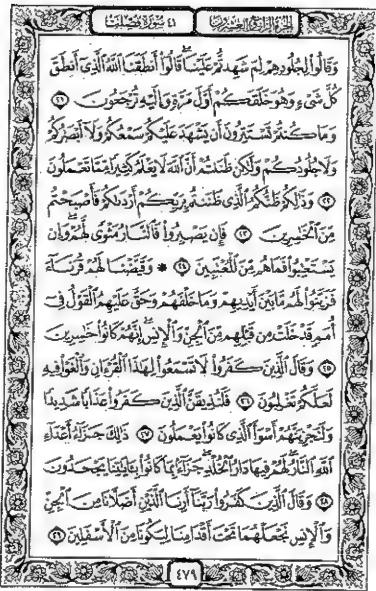 الجزء الرابع والعشرون
سورة فصلت ٤١
وَقَالُوا۟ لِجُلُودِهِمْ لِمَ شَهِدتُّمْ عَلَيْنَا ۖ قَالُوٓا۟ أَنطَقَنَا ٱللَّهُ ٱلَّذِىٓ أَنطَقَ
كُلَّ شَىْءٍ وَهُوَ خَلَقَكُمْ أَوَّلَ مَرَّةٍ وَإِلَيْهِ تُرْجَعُونَ ٢١
وَمَا كُنتُمْ تَسْتَتِرُونَ أَن يَشْهَدَ عَلَيْكُمْ سَمْعُكُمْ وَلَآ أَبْصَٰرُكُمْ
وَلَا جُلُودُكُمْ وَلَٰكِن ظَنَنتُمْ أَنَّ ٱللَّهَ لَا يَعْلَمُ كَثِيرًا مِّمَّا تَعْمَلُونَ
٢٢ وَذَٰلِكُمْ ظَنُّكُمُ ٱلَّذِى ظَنَنتُم بِرَبِّكُمْ أَرْدَىٰكُمْ فَأَصْبَحْتُم
مِّنَ ٱلْخَٰسِرِينَ ٢٣ فَإِن يَصْبِرُوا۟ فَٱلنَّارُ مَثْوًى لَّهُمْ ۖ وَإِن
يَسْتَعْتِبُوا۟ فَمَا هُم مِّنَ ٱلْمُعْتَبِينَ ٢٤ ۞ وَقَيَّضْنَا لَهُمْ قُرَنَآءَ
فَزَيَّنُوا۟ لَهُم مَّا بَيْنَ أَيْدِيهِمْ وَمَا خَلْفَهُمْ وَحَقَّ عَلَيْهِمُ ٱلْقَوْلُ فِىٓ
أُمَمٍ قَدْ خَلَتْ مِن قَبْلِهِم مِّنَ ٱلْجِنِّ وَٱلْإِنسِ ۖ إِنَّهُمْ كَانُوا۟ خَٰسِرِينَ
٢٥ وَقَالَ ٱلَّذِينَ كَفَرُوا۟ لَا تَسْمَعُوا۟ لِهَٰذَا ٱلْقُرْءَانِ وَٱلْغَوْا۟ فِيهِ
لَعَلَّكُمْ تَغْلِبُونَ ٢٦ فَلَنُذِيقَنَّ ٱلَّذِينَ كَفَرُوا۟ عَذَابًا شَدِيدًا
وَلَنَجْزِيَنَّهُمْ أَسْوَأَ ٱلَّذِى كَانُوا۟ يَعْمَلُونَ ٢٧ ذَٰلِكَ جَزَآءُ أَعْدَآءِ
ٱللَّهِ ٱلنَّارُ ۖ لَهُمْ فِيهَا دَارُ ٱلْخُلْدِ ۖ جَزَآءًۢ بِمَا كَانُوا۟ بِـَٔايَٰتِنَا يَجْحَدُونَ
٢٨ وَقَالَ ٱلَّذِينَ كَفَرُوا۟ رَبَّنَآ أَرِنَا ٱلَّذَيْنِ أَضَلَّانَا مِنَ ٱلْجِنِّ
وَٱلْإِنسِ نَجْعَلْهُمَا تَحْتَ أَقْدَامِنَا لِيَكُونَا مِنَ ٱلْأَسْفَلِينَ ٢٩
٤٧٩